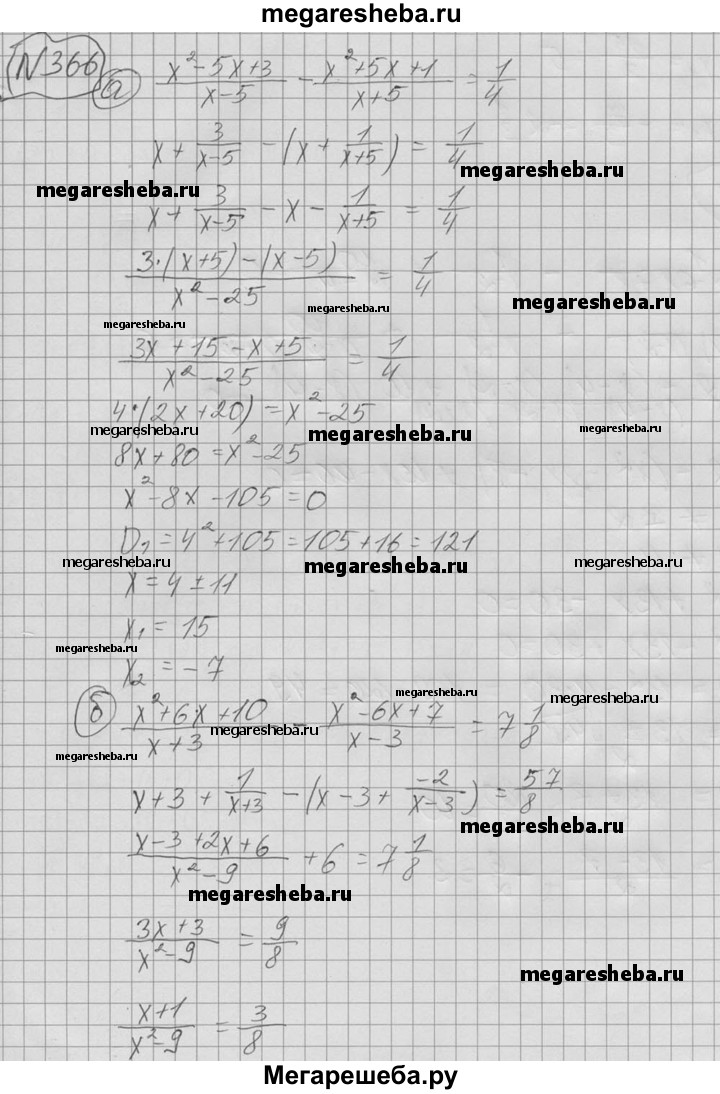 megaresheba.ru
N366
а) (x²-5x+3)/(x-5) - (x²+5x+1)/(x+5) = 1/4
x + 3/(x-5) - (x + 1/(x+5)) = 1/4
megaresheba.ru
megaresheba.ru
x + 3/(x-5) - x - 1/(x+5) = 1/4
(3·(x+5)-(x-5))/(x²-25) = 1/4
megaresheba.ru megaresheba.ru megaresheba.ru
(3x+15-x+5)/(x²-25) = 1/4
4·(2x+20) = x²-25
megaresheba.ru megaresheba.ru megaresheba.ru
8x+80 = x²-25
x²-8x-105=0
D₁ = 4²+105 = 105+16 = 121
megaresheba.ru megaresheba.ru megaresheba.ru
x = 4 ± 11
x₁ = 15
megaresheba.ru
x₂ = -7
megaresheba.ru megaresheba.ru
б) (x²+6x+10)/(x+3) - (x²-6x+7)/(x-3) = 7 1/8
megaresheba.ru megaresheba.ru
x+3 + 1/(x+3) - (x-3 + -2/(x-3)) = 57/8
megaresheba.ru
(x-3+2x+6)/(x²-9) + 6 = 7 1/8
megaresheba.ru
(3x+3)/(x²-9) = 9/8
megaresheba.ru
(x+1)/(x²-9) = 3/8
Мегарешеба.ру